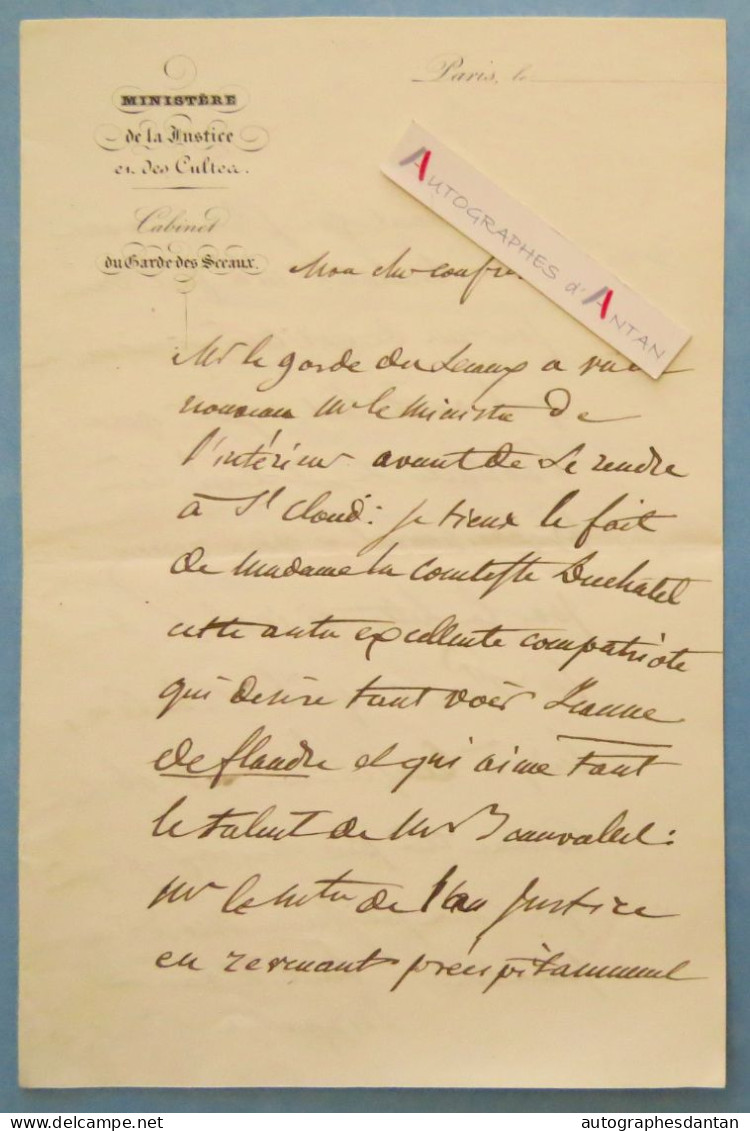 MINISTÈRE
de la Justice
et des Cultes.
Cabinet
du Garde des Sceaux.
Paris, le
AUTOGRAPHES d'ANTAN
Mon cher confrè
Mr le garde des Sceaux a vu de
nouveau Mr le Ministre de
l'intérieur avant de se rendre
à St Cloud: je tiens le fait
de Madame la comtesse Duchatel
cette autre excellente compatriote
qui desire tant voir Jeanne
de flandre et qui aime tant
le talent de Mr Beauvallet:
Mr le Mtre de la Justice
en revenant précipitamment
autographesdantan
delcampe.net
autographesdantan